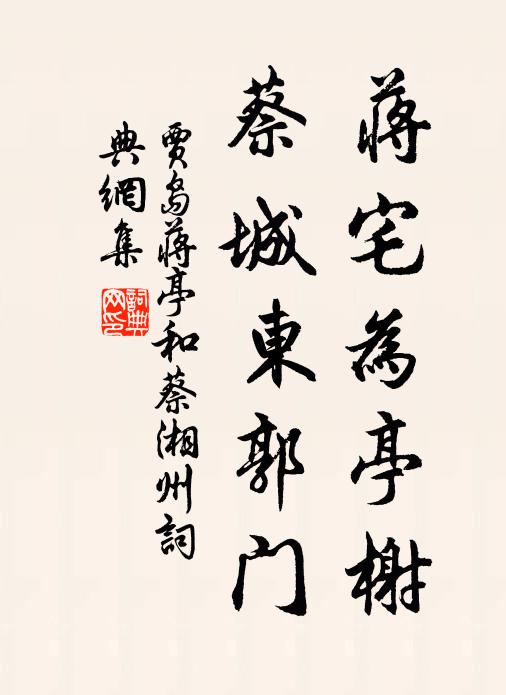 蔣宅為亭榭
蔡城東郭门
賈島蔣亭和蔡湘州詞
典網集
詞典
网印